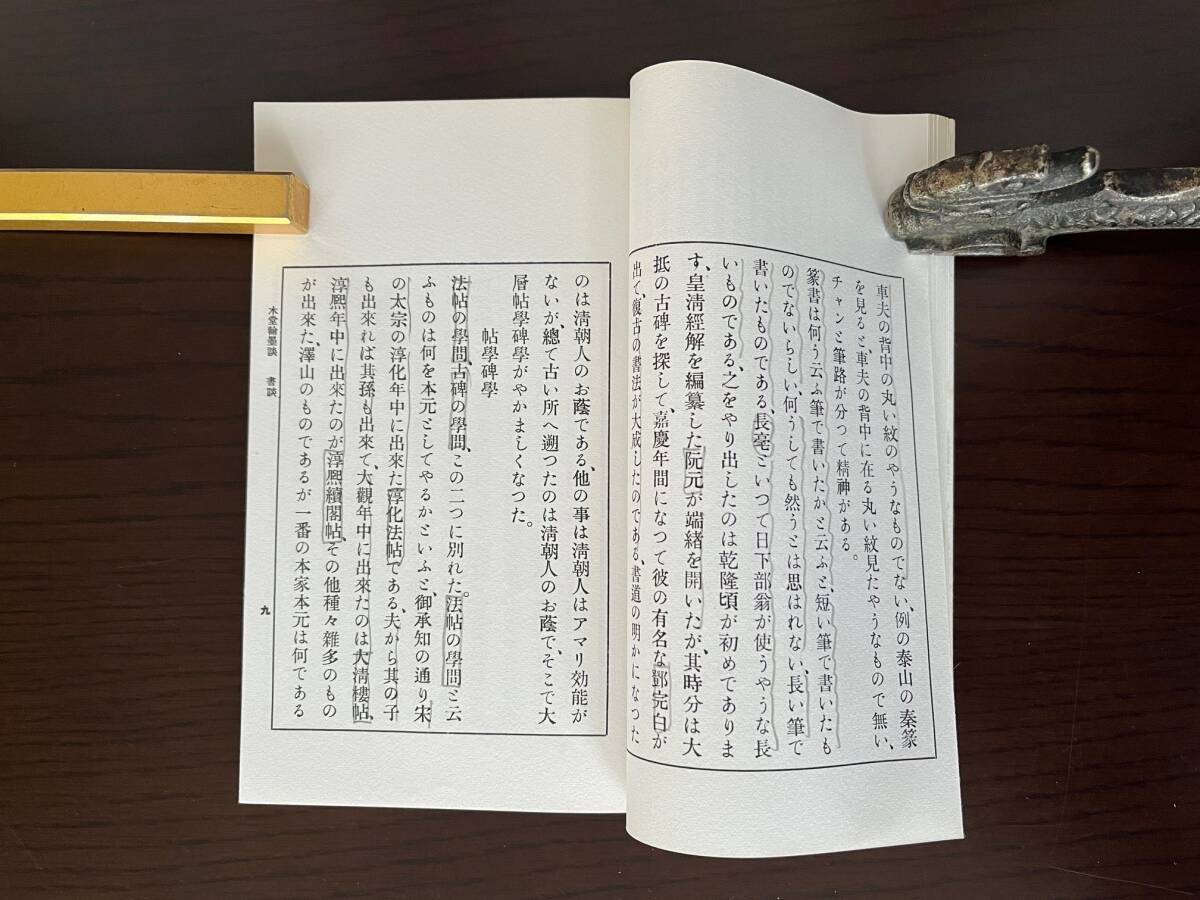 車夫の背中の丸い紋のやうなものでない、例の泰山の秦篆
を見ると、車夫の背中に在る丸い紋見たやうなもので無い、
チャンと筆路が分つて精神がある。
篆書は何う云ふ筆で書いたかと云ふと、短い筆で書いたも
のでないらしい、何うしても然うとは思はれない、長い筆で
書いたものである、長毫といつて日下部翁が使うやうな長
いものである、之をやり出したのは乾隆頃が初めてでありま
す、皇清經解を編纂した阮元が端緒を開いたが、其時分は大
抵の古碑を探して、嘉慶年間になつて彼の有名な鄧完白が
出て、復古の書法が大成したのである、書道の明かになつた
のは清朝人のお蔭である、他の事は清朝人はアマリ効能が
ないが、總て古い所へ遡つたのは清朝人のお蔭で、そこで大
層帖學碑學がやかましくなつた。
帖學碑學
法帖の學問、古碑の學問、この二つに別れた。法帖の學問と云
ふものは何を本元としてやるかといふと、御承知の通り宋
の太宗の淳化年中に出來た淳化法帖である、夫から其の子
も出來れば其孫も出來て、大觀年中に出來たのは大清樓帖、
淳熈年中に出來たのが淳熈續閣帖、その他種々雜多のもの
が出來た、澤山のものであるが一番の本家本元は何である
木堂翰墨談 書談
九